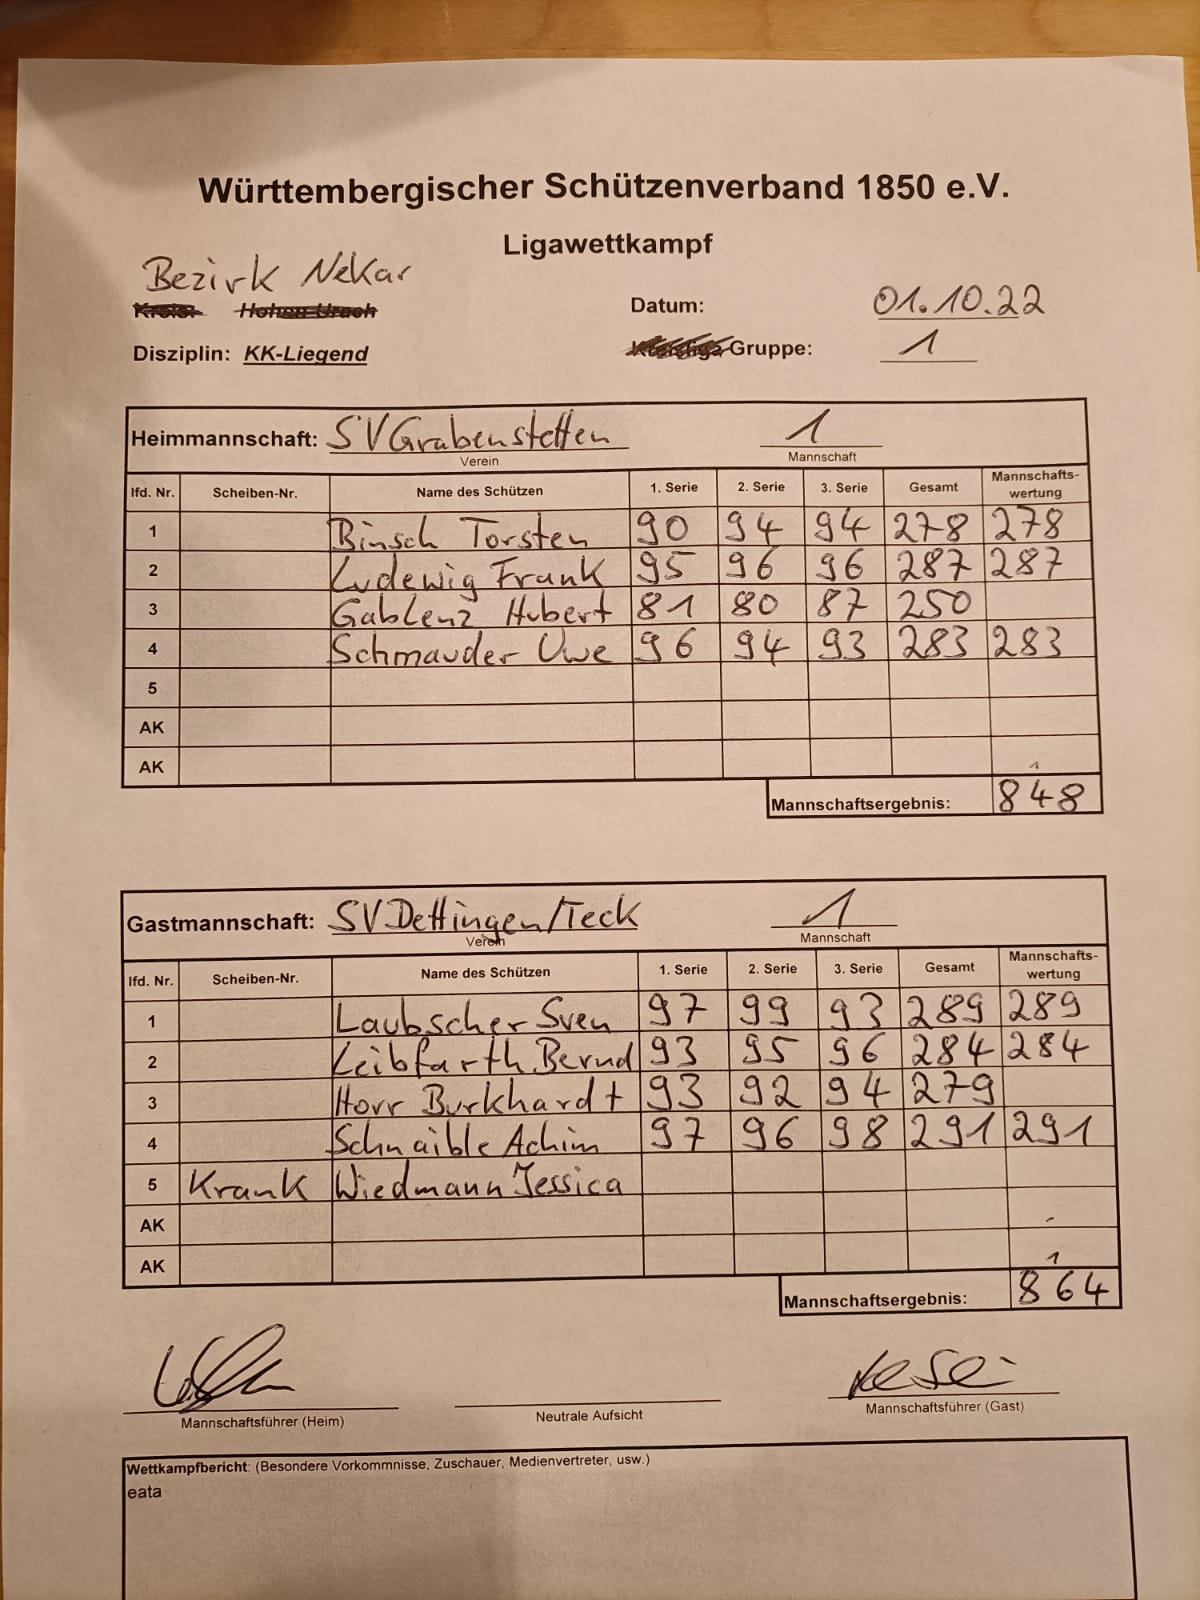 Württembergischer Schützenverband 1850 e.V.
Ligawettkampf
Bezirk Nekar
Datum: 01.10.22
Disziplin: KK-Liegend
Gruppe: 1
Heimmannschaft: SV Grabenstetten 1
Verein Mannschaft
lfd. Nr. Scheiben-Nr. Name des Schützen 1. Serie 2. Serie 3. Serie Gesamt Mannschafts-wertung
1 Binsch Torsten 90 94 94 278 278
2 Ludewig Frank 95 96 96 287 287
3 Gablenz Hubert 81 80 87 250
4 Schmauder Uwe 96 94 93 283 283
5
AK
AK
Mannschaftsergebnis: 848
Gastmannschaft: SV Dettingen/Teck 1
Verein Mannschaft
lfd. Nr. Scheiben-Nr. Name des Schützen 1. Serie 2. Serie 3. Serie Gesamt Mannschafts-wertung
1 Laubscher Sven 97 99 93 289 289
2 Leibfarth Bernd 93 95 96 284 284
3 Horr Burkhardt 93 92 94 279
4 Schnaible Achim 97 96 98 291 291
5 Krank Wiedmann Jessica
AK
AK
Mannschaftsergebnis: 864
Mannschaftsführer (Heim) Neutrale Aufsicht Mannschaftsführer (Gast)
Wettkampfbericht: (Besondere Vorkommnisse, Zuschauer, Medienvertreter, usw.)
eata